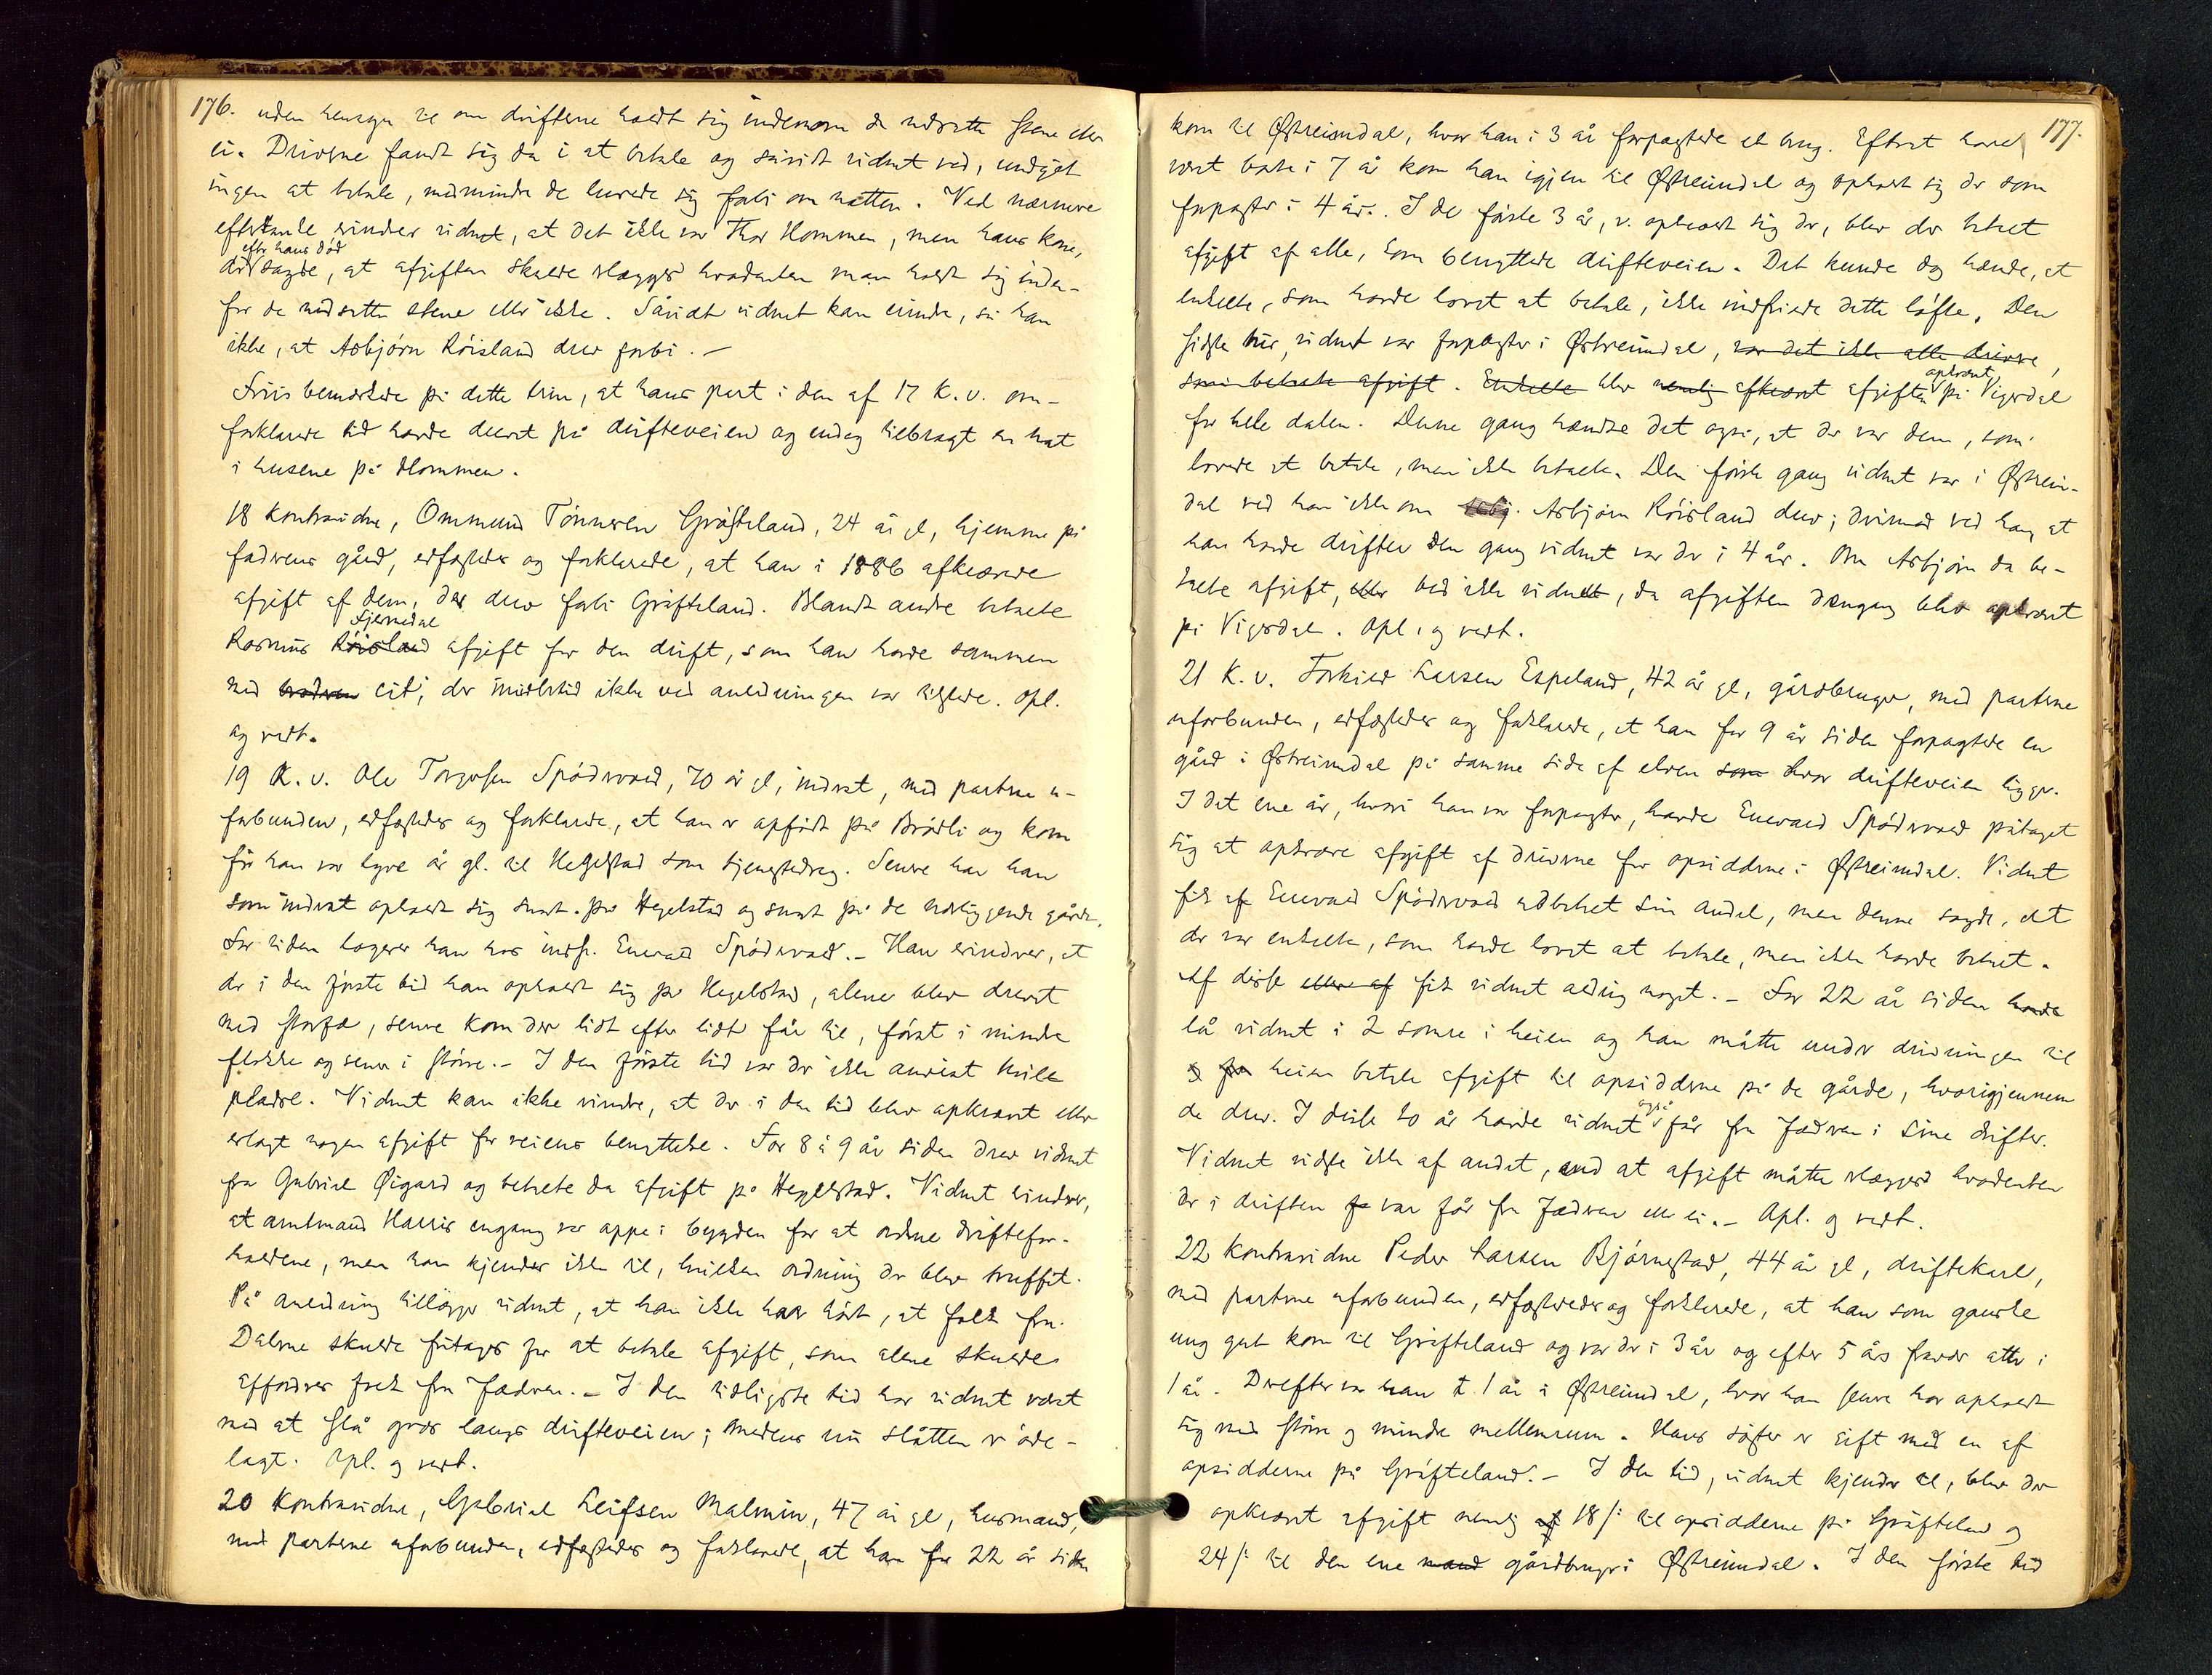 176.
uden hensyn til om drifterne holdt sig indenom de nedsatte stene eller
ei. Driverne fandt sig da i at betale og såvidt vidnet ved, undgik
ingen at betale, medmindre de lurede sig forbi om natten. Ved nærmere
eftertanke erindrer vidnet, at det ikke var Thor Hommen, men hans kone,
efter hans død
der sagde, at afgiften skulde erlægges hvadenten man holdt sig inden-
for de nedsatte stene eller ikke. Såvidt vidnet kan erindre, så han
ikke, at Asbjørn Röisland drev forbi. –
Friis bemærkede på dette trin, at hans part i den af 17 K. v. om-
forklarede tid havde drevet på drifteveien og endog tilbragt en nat
i husene på Hommen.
18 kontravidne, Ommund Tönnesen Gråfteland, 24 år gl, hjemme på
faderens gård, edfæstedes og forklarede, at han i 1886 afkrævede
afgift af dem, der drev forbi Gråfteland. Blandt andre betalte
Fjermedal
Rasmus Röisland afgift for den drift, som han havde sammen
med broderen cit; der imidlertid ikke ved anledningen var tilstede. Opl.
og vedt.
19 K. v. Ole Torgersen Spödervold, 70 år gl, inderst, med partene u-
forbunden, edfæstedes og forklarede, at han er opfödt på Brådli og kom
för han var tyve år gl. til Hegelstad som tjenestedreng. Senere har han
som inderst opholdt sig snart på Hegelstad og snart på de nærliggende gårde.
For tiden logerer han hos indst. Enevald Spödervold. – Han erindrer, at
der i den förste tid han opholdt sig på Hegelstad, alene blev drevet
med storfæ, senere kom der lidt efter lidt får til, först i mindre
flokke og senere i större. – I den förste tid var der ikke anvist hvile
pladse. Vidnet kan ikke erindre, at der i den tid blev opkrævet eller
erlagt nogen afgift for veiens benyttelse. For 8 à 9 år siden drev vidnet
for Gabriel Öigard og betalte da afgift på Hegelstad. Vidnet erindrer,
at amtmand Harris engang var oppe i bygden for at ordne driftefor-
holdene, men han kjender ikke til, hvilken ordning der blev truffet.
På anledning tillægger vidnet, at han ikke har hört, at folk fra
Dalene skulde fritages for at betale afgift, som alene skulde
affordres folk fra Jæderen. – I den tidligste tid har vidnet været
med at slå græs langs drifteveien; medens nu slåtten er öde-
lagt. Opl. og vedt.
20 Kontravidne, Gabriel Leifsen Malmin, 47 år gl, husmand,
med parterne uforbunden, edfæstedes og forklarede, at han for 22 år siden
177.
kom til Østreimdal, hvor han i 3 år forpagtede et brug. Efterat have
været borte i 7 år kom han igjen til Østreimdal og opholdt sig der som
forpagter i 4 år. I de förste 3 år, v. opholdt sig der, blev der betalt
afgift af alle, som benyttede drifteveien. Det kunde dog hænde, at
enkelte, som havde lovet at betale, ikke indfriede dette löfte. Den
sidste tur, vidnet var forpagter i Østreimdal, var det ikke alle drivere,
opkrævet
som betalte afgift. Enkelte blev nemlig afkrævet afgiften på Vigesdal
for hele dalen. Denne gang hændte det også, at der var dem, som
lovede at betale, men ikke betalte. Den förste gang vidnet var i Østreim-
dal ved han ikke om Asbjörn Röisland drev; derimod ved han, at
han havde drifter den gang vidnet var der i 4 år. Om Asbjörn da be-
talte afgift, ved ikke vidnet, da afgiften dengang blev opkrævet
på Vigesdal. Opl. og vedt.
21 K. v. Torkild Larsen Espeland, 42 år gl, gårdbruger, med parterne
uforbunden, edfæstedes og forklarede, at han for 9 år siden forpagtede en
gård i Østreimdal på samme side af elven som hvor drifteveien ligger.
I det ene år, hvori han var forpagter, havde Enevald Spödervold påtaget
sig at opkræve afgift af driverne for opsidderne i Østreimdal. Vidnet
fik af Enevald Spödervold udbetalt sin andel, men denne sagde, at
der var enkelte, som havde lovet at betale, men ikke havde betalt.
Af disse eller af fik vidnet aldrig noget. – For 22 år siden havde
lå vidnet i 2 somre i heien og han måtte under drivningen til
og fra heien betale afgift til opsidderne på de gårde, hvorigjennem
også
de drev. I disse to år havde vidnet får fra Jæderen i sine drifter.
Vidnet vidste ikke af andet, end at afgift måtte erlægges hvadenten
der i driften var får fra Jæderen eller ei. – Opl. og vedt.
22 Kontravidne Peder Larsen Bjørnestad, 44 år gl, driftekarl,
med parterne uforbunden, edfæstedes og forklarede, at han som ganske
ung gut kom til Gråfteland og var der i 3 år og efter 5 års fravær atter i
1 år. Derefter var han 1 år i Østreimdal, hvor han senere har opholdt
sig med större og mindre mellemrum. Hans söster er gift med en af
opsidderne på Gråfteland. – I den tid, vidnet kjender til, blev der
opkrævet afgift nemlig af 18 /: til opsidderne på Gråfteland og
24 /: til den ene mand gårdbruger i Østreimdal. I den förste tid